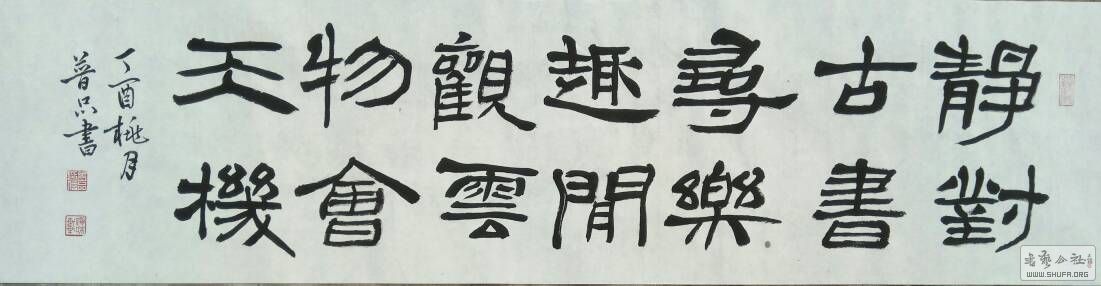 靜對
古書
尋樂
趣閒
觀雲
物會
天機
丁酉桃月
普只書
书艺公社
WWW.SHUFA.ORG